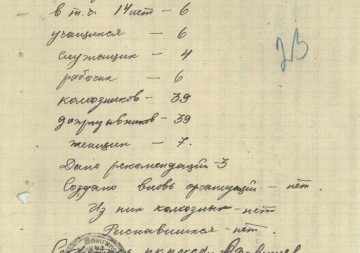 в т.ч. 14 лет – 6
23
учащихся – 6
служащих – 4
рабочих – 6
колхозников – 39
допризывников – 39
женщин – 7.
Дано рекомендаций – 3
Создано вновь организаций – нет.
Из них колхозных – нет
Распавшихся – нет.
Секретарь